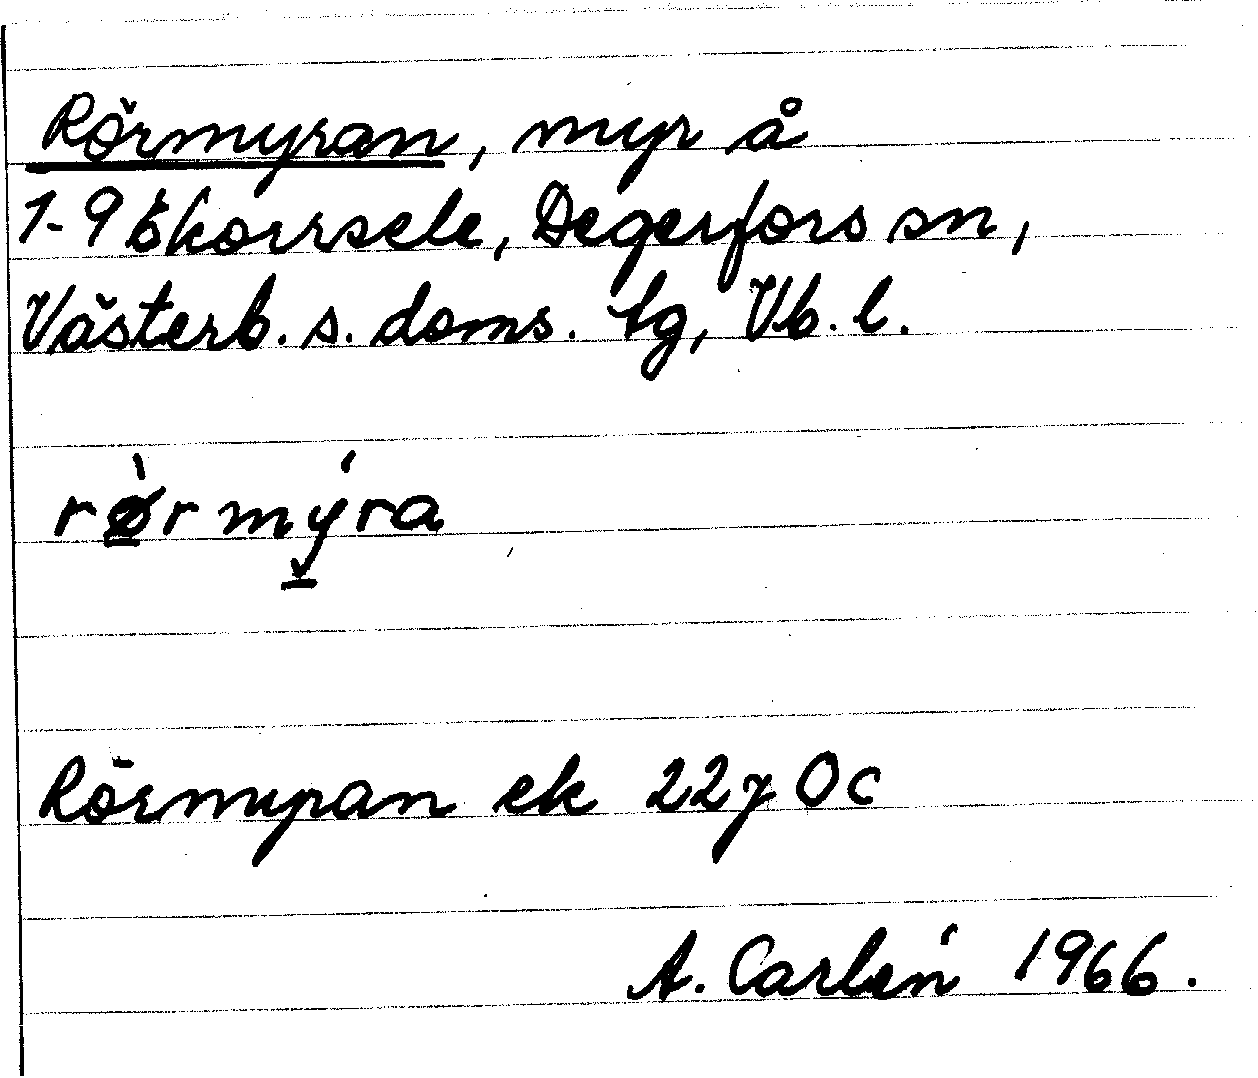 Rörmyran, myr å
1-9 Ekorrsele, Degerfors sn,
Västerb. s. doms. tg, Vb. l.
rø̀rmýra
Rörmyran ek 22 j 0c
A. Carlén 1966.